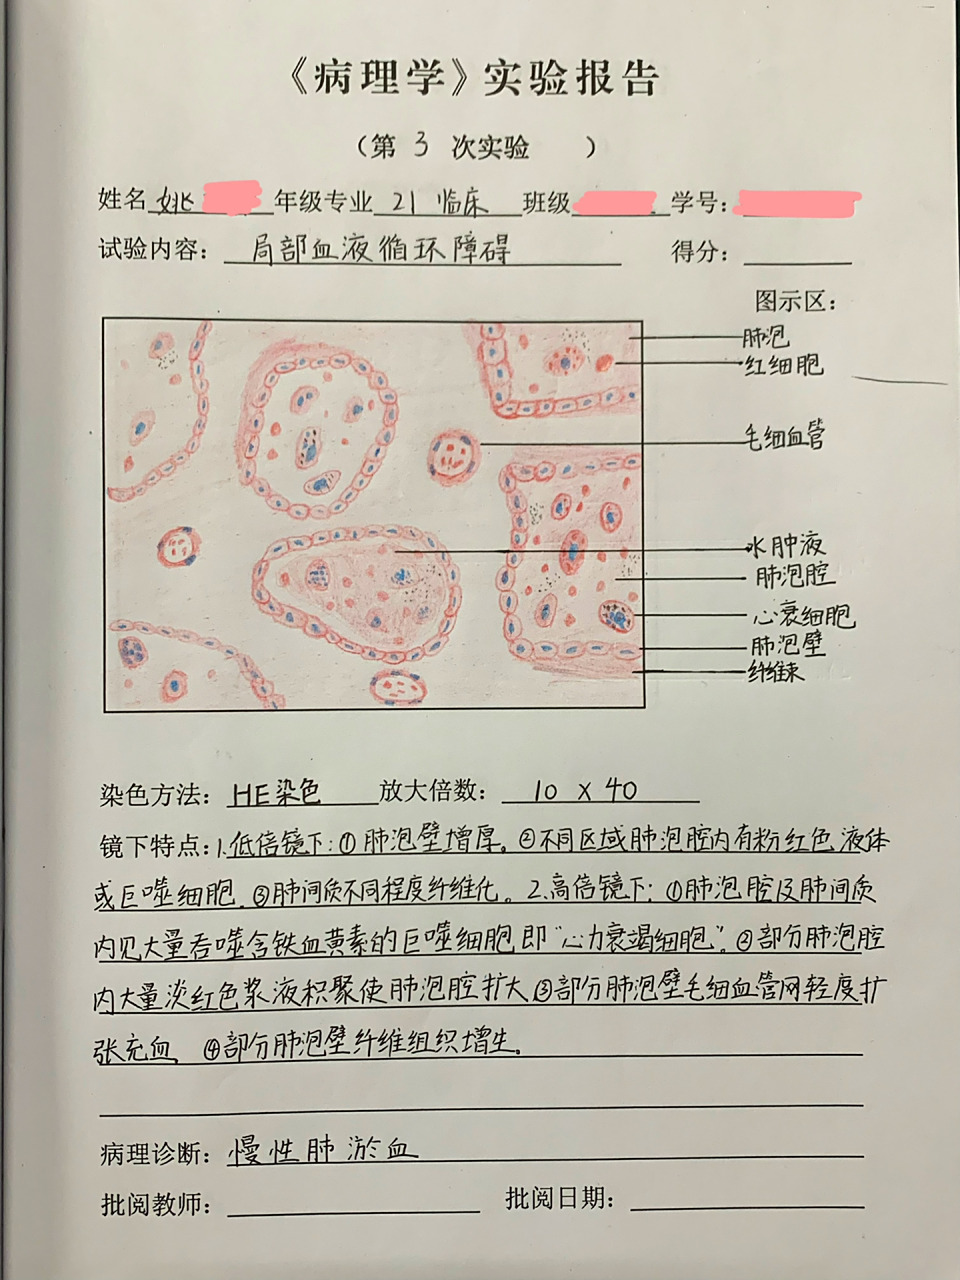 《病理学》实验报告
（第 3 次实验 ）
姓名 姚 年级专业 21 临床 班级 学号：
试验内容： 局部血液循环障碍 得分：
图示区：
肺泡
红细胞
毛细血管
水肿液
肺泡腔
心衰细胞
肺泡壁
纤维束
染色方法： HE染色 放大倍数： 10 X 40
镜下特点：1.低倍镜下：①肺泡壁增厚。②不同区域肺泡腔内有粉红色液体
或巨噬细胞。③肺间质不同程度纤维化。2.高倍镜下：①肺泡腔及肺间质
内见大量吞噬含铁血黄素的巨噬细胞即“心力衰竭细胞”。②部分肺泡腔
内大量淡红色浆液积聚使肺泡腔扩大③部分肺泡壁毛细血管网轻度扩
张充血。④部分肺泡壁纤维组织增生。
病理诊断： 慢性肺淤血
批阅教师： 批阅日期：